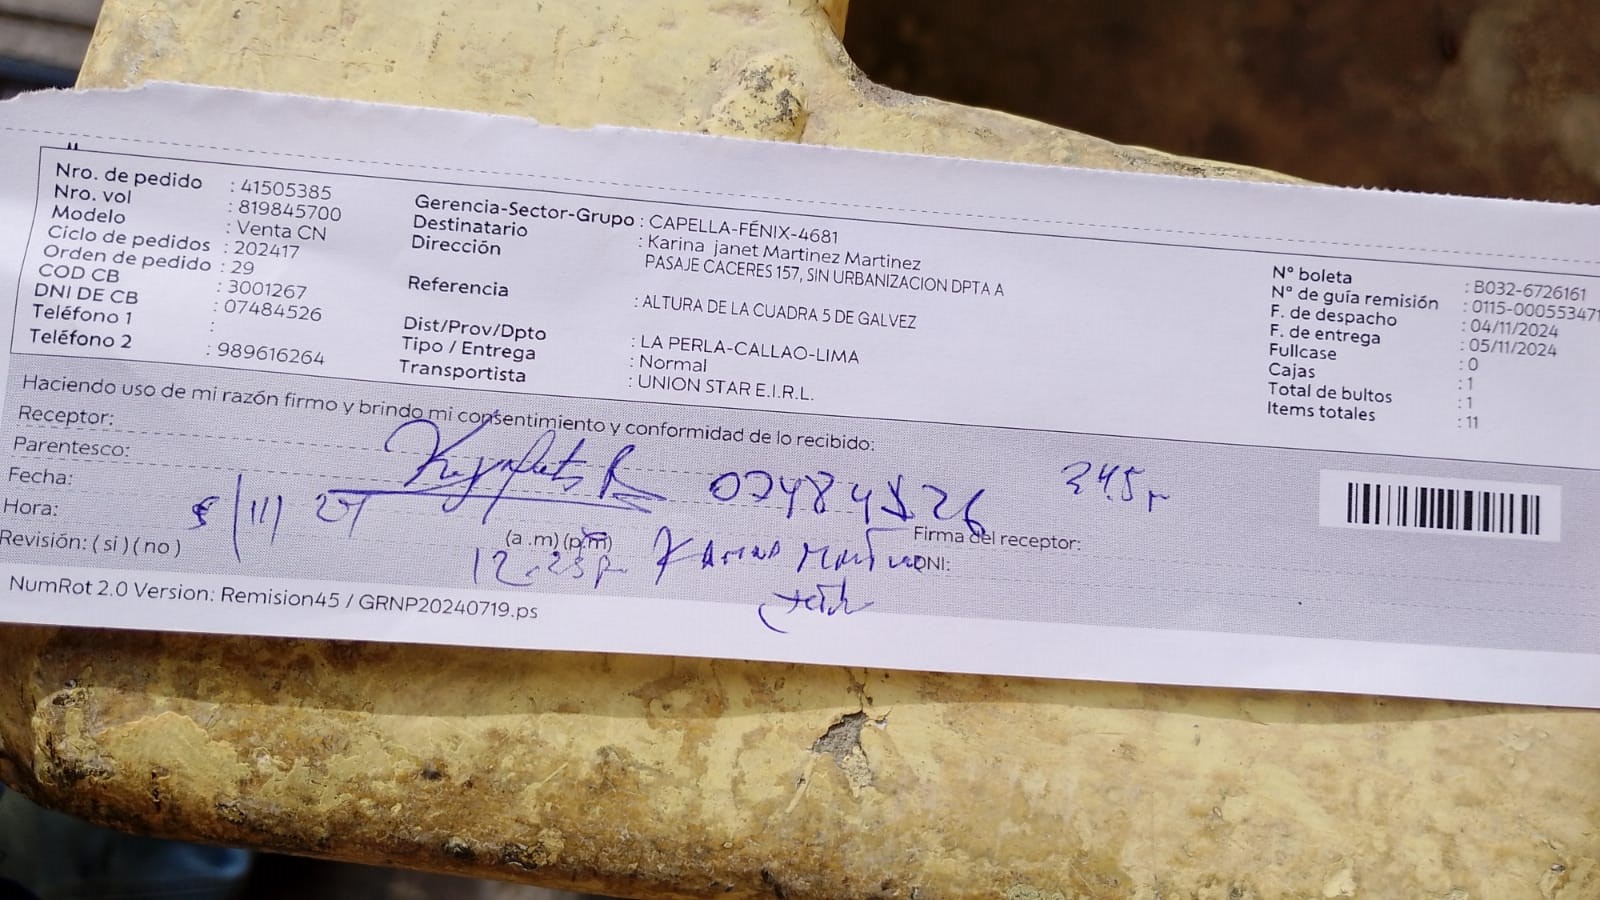 Nro. de pedido : 41505385
Nro. vol : 819845700
Modelo : Venta CN
Ciclo de pedidos : 202417
Orden de pedido : 29
COD CB : 3001267
DNI DE CB : 07484526
Teléfono 1 :
Teléfono 2 : 989616264
Gerencia-Sector-Grupo : CAPELLA-FÉNIX-4681
Destinatario : Karina janet Martinez Martinez
Dirección PASAJE CACERES 157, SIN URBANIZACION DPTA A
Referencia : ALTURA DE LA CUADRA 5 DE GALVEZ
Dist/Prov/Dpto : LA PERLA-CALLAO-LIMA
Tipo / Entrega : Normal
Transportista : UNION STAR E.I.R.L.
N° boleta : B032-6726161
N° de guía remisión : 0115-000553471
F. de despacho : 04/11/2024
F. de entrega : 05/11/2024
Fullcase : 0
Cajas : 1
Total de bultos : 1
Items totales : 11
Haciendo uso de mi razón firmo y brindo mi consentimiento y conformidad de lo recibido:
Receptor:
Parentesco:
07484526
Fecha:
Hora: (a .m) (p.m)
Firma del receptor:
Revisión: ( si ) ( no )
DNI:
NumRot 2.0 Version: Remision45 / GRNP20240719.ps